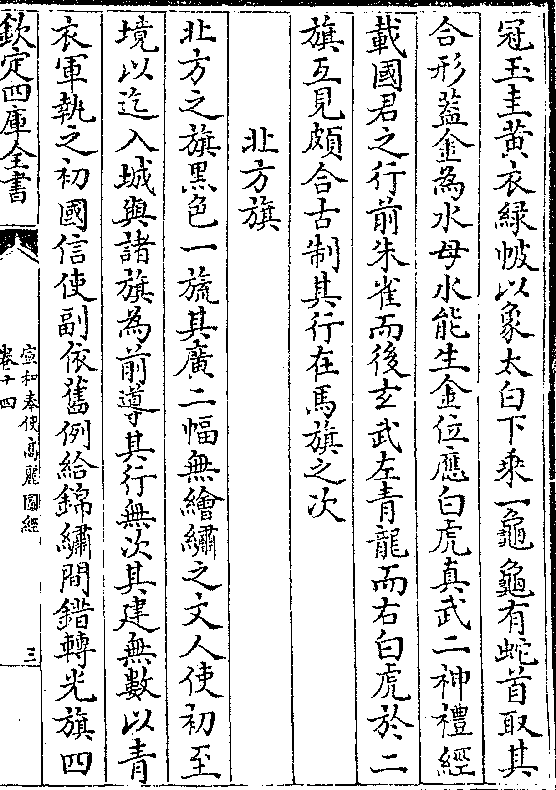 冠玉圭黄衣綠帔以象太白下乘一龜龜有蛇首取其
合形蓋金為水母水能生金位應白虎真武二神禮經
載國君之行前朱雀而後玄武左青龍而右白虎於二
旗互見頗合古制其行在馬旗之次
北方旗
北方之旗黑色一旒其廣二幅無繪繡之文人使初至
境以迄入城與諸旗為前導其行無次其建無數以青
衣軍執之初國信使副依舊例給錦繡間錯轉光旗四
欽定四庫全書
宣和奉使高麗圖經
卷十四
三